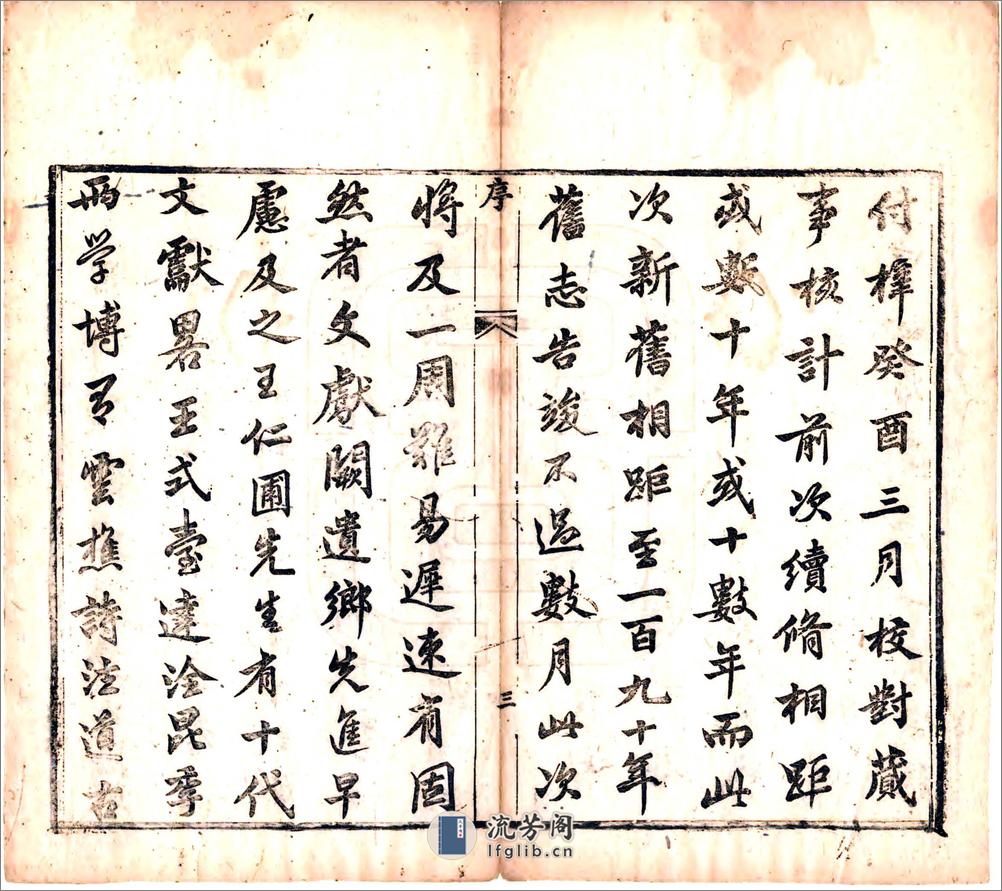 付梓癸酉三月校對蕆
事核計前次續脩相距
或數十年或十數年而此
次新舊相距至一百九十年
舊志告竣不過數月此次
序
三
將及一周難易遲速有固
然者文獻闕遺鄉先進早
慮及之王仁圃先生有十代
文獻畧王式臺達淦昆季
兩學博有雲樵詩注道古
流芳阁
lfglib.cn